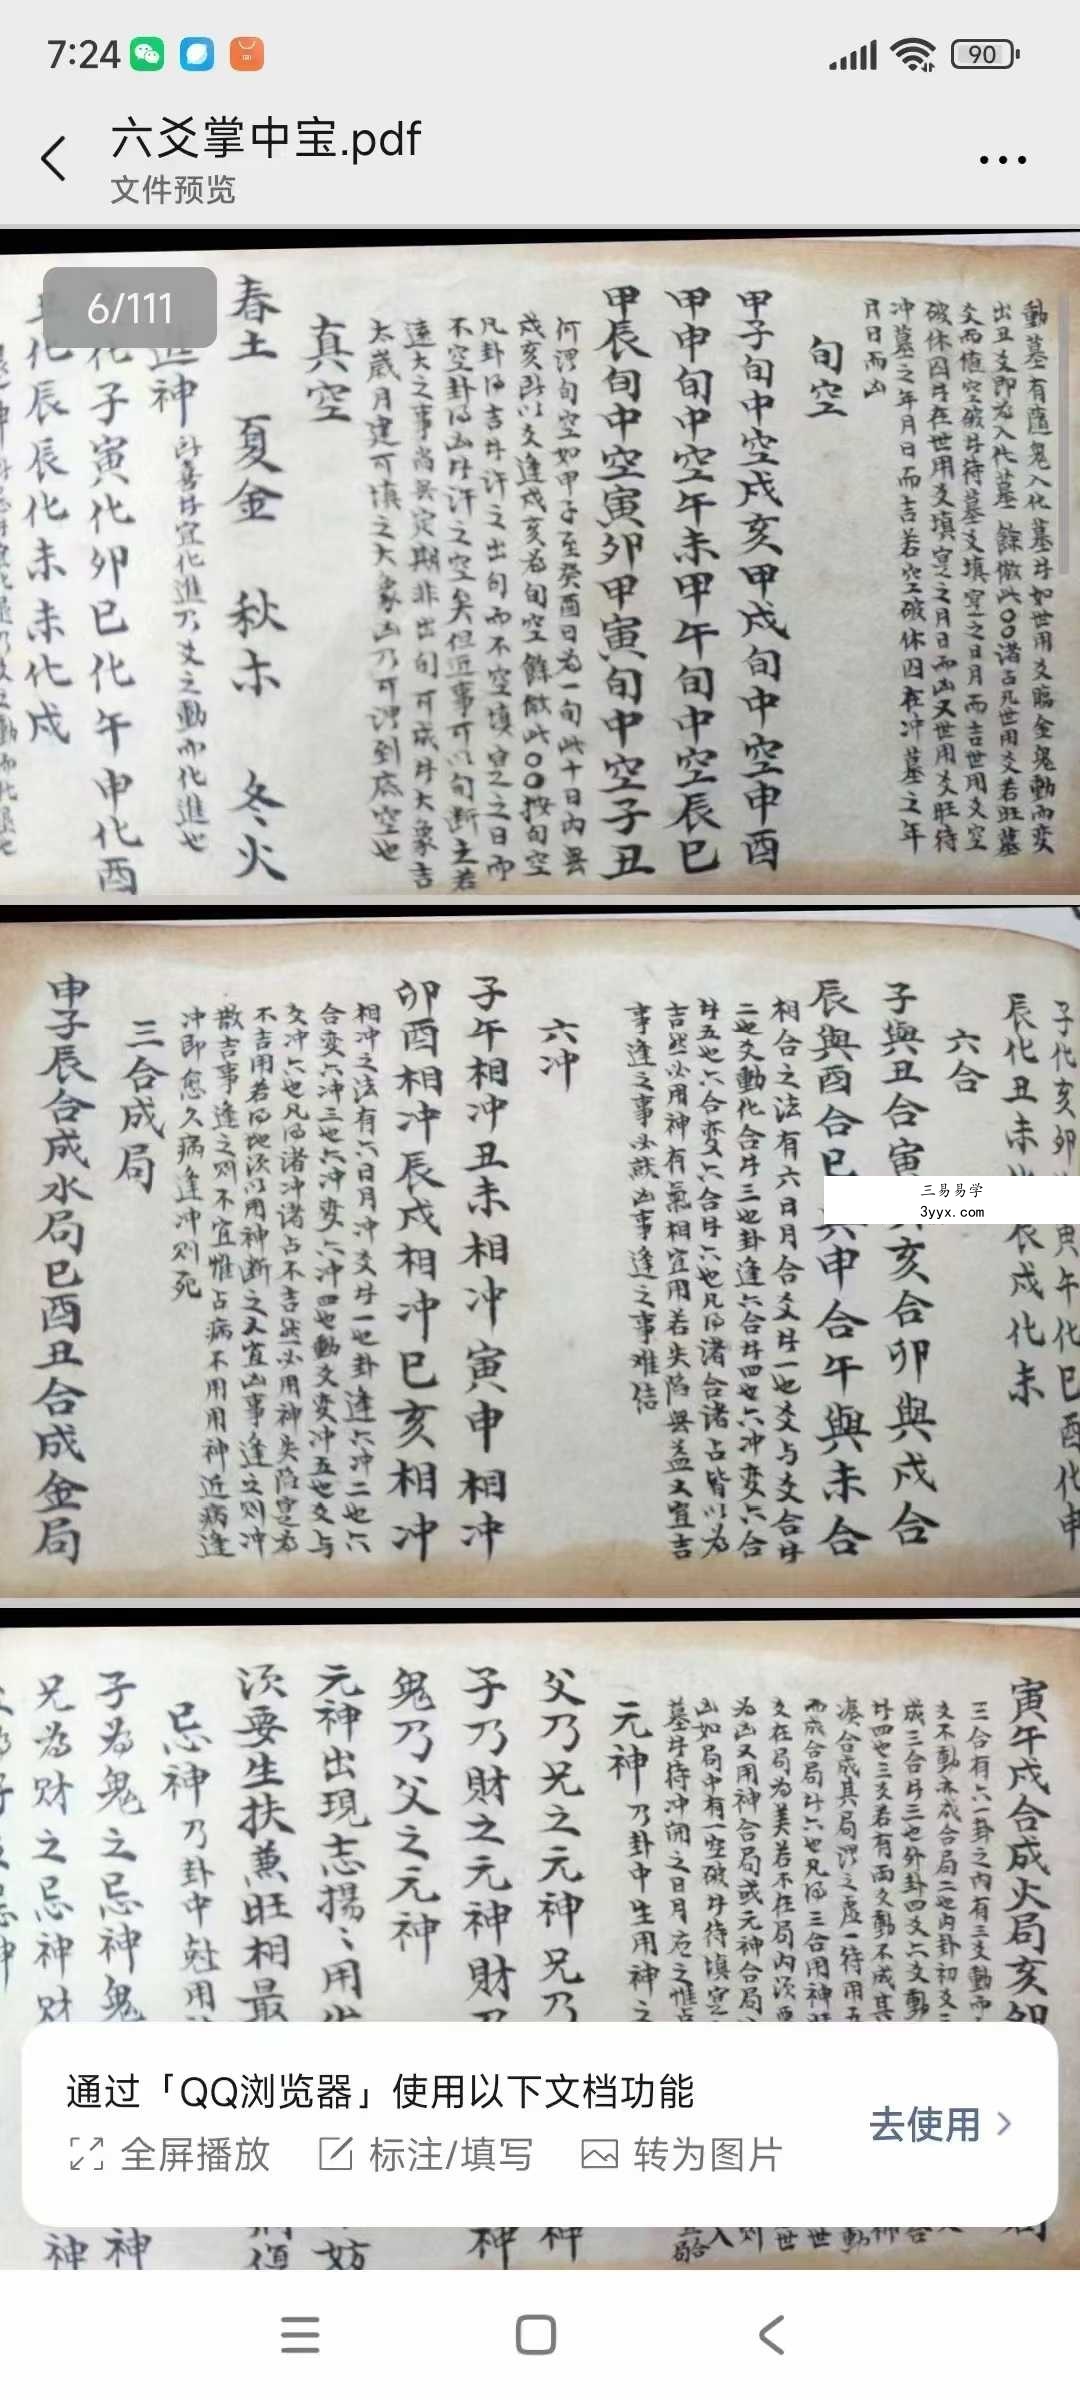 7:24
90
六爻掌中宝.pdf
文件预览
6/111
動墓有隨鬼入化墓者如世用爻臨金鬼動而変
出丑爻即為入化墓餘倣此〇〇諸占凡世用爻若旺墓
爻而值空破者待墓爻填空之日月而吉世用爻空
破休囚者在世用爻填寔之月日而凶又世用爻旺待
冲墓之年月日而吉若空破休囚在冲墓之年
月日而凶
旬空
甲子旬中空戌亥甲戌旬中空申酉
甲申旬中空午未甲午旬中空辰巳
甲辰旬中空寅卯甲寅旬中空子丑
何謂旬空如甲子至癸酉日為一旬此十日内無
戌亥所以爻逢戌亥為旬空餘倣此〇〇按旬空
凡卦得吉者許之出旬而不空填寔之日而
不空卦得凶者許之空矣但近事可以旬断之若
遠大之事尚無定期非出旬可成者大象吉
太歲月建可填之大象凶乃可謂到底空也
真空
春土 夏金 秋木 冬火
進神 卦喜者宜化進乃爻之動而化進也
化子寅化卯巳化午申化酉
丑化辰辰化未未化戌
子化亥卯化寅午化巳酉化申
辰化丑未化辰戌化未
六合
子與丑合寅與亥合卯與戌合
辰與酉合巳與申合午與未合
相合之法有六日月合爻者一也爻与爻合者
二也爻動化合者三也卦逢六合者四也六冲変六合
者五也六合変六合者六也凡得諸合諸占皆以為
吉然必用神有氣相宜用若失陷無益又宜吉
事逢之事必就凶事逢之事难结
三易易学
3yyx.com
六冲
子午相冲丑未相冲寅申相冲
卯酉相冲辰戌相冲巳亥相冲
相冲之法有六日月冲爻者一也卦逢六冲二也六
合変六冲三也六冲変六冲四也動爻変冲五也爻与
爻冲六也凡得諸冲諸占不吉然必用神失陷寔為
不吉用若得地須以用神断之又宜凶事逢之则冲
散吉事逢之则不宜惟占病不用用神近病逢
冲即愈久病逢冲则死
三合成局
申子辰合成水局巳酉丑合成金局
寅午戌合成火局亥卯
三合有六一卦之内有三爻動而
爻不動亦成合局二也内卦初爻三
成三合者三也外卦四爻六爻動
者四也三爻若有両爻動不成其
凑合成其局謂之虚一待用五
而成合局者六也凡得三合用神旺
爻在局為美若不在局内須要
為凶又用神合局或元神合局
凶如局中有一空破者待填寔
墓者待冲開之日月应之惟占
元神 乃卦中生用神之
父乃兄之元神兄乃
子乃財之元神財乃
鬼乃父之元神
元神出現志揚揚用
須要生扶兼旺相最
忌神 乃卦中尅用
子為鬼之忌神鬼
兄為財之忌神財
通过「QQ浏览器」使用以下文档功能
去使用
全屏播放 标注/填写 转为图片